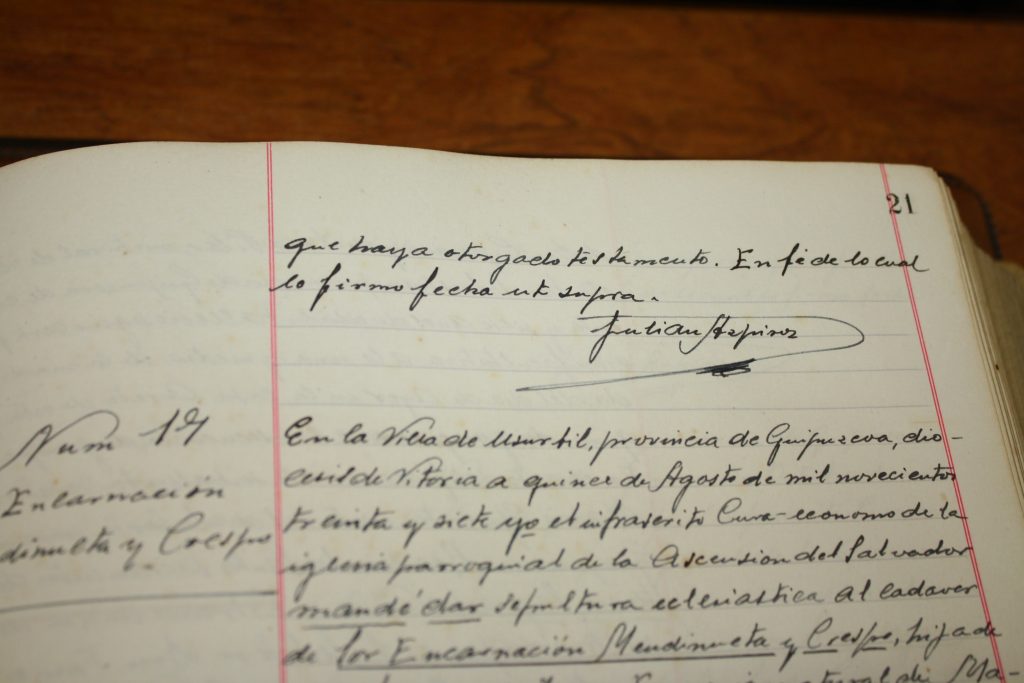 21
que haya otorgado testamento. En fé de lo cual
lo firmo fecha ut supra.
Julian Azpiroz
Num 17
Encarnación
dinueta y Crespo
En la Villa de Usurbil, provincia de Guipuzcoa, dió-
cesis de Vitoria a quince de Agosto de mil novecientos
treinta y siete yo el infrascrito Cura-economo de la
iglesia parroquial de la Ascension del Salvador
mandé dar sepultura eclesiastica al cadaver
de Sor Encarnación Mendinueta y Crespo, hija de
natural de Ma-